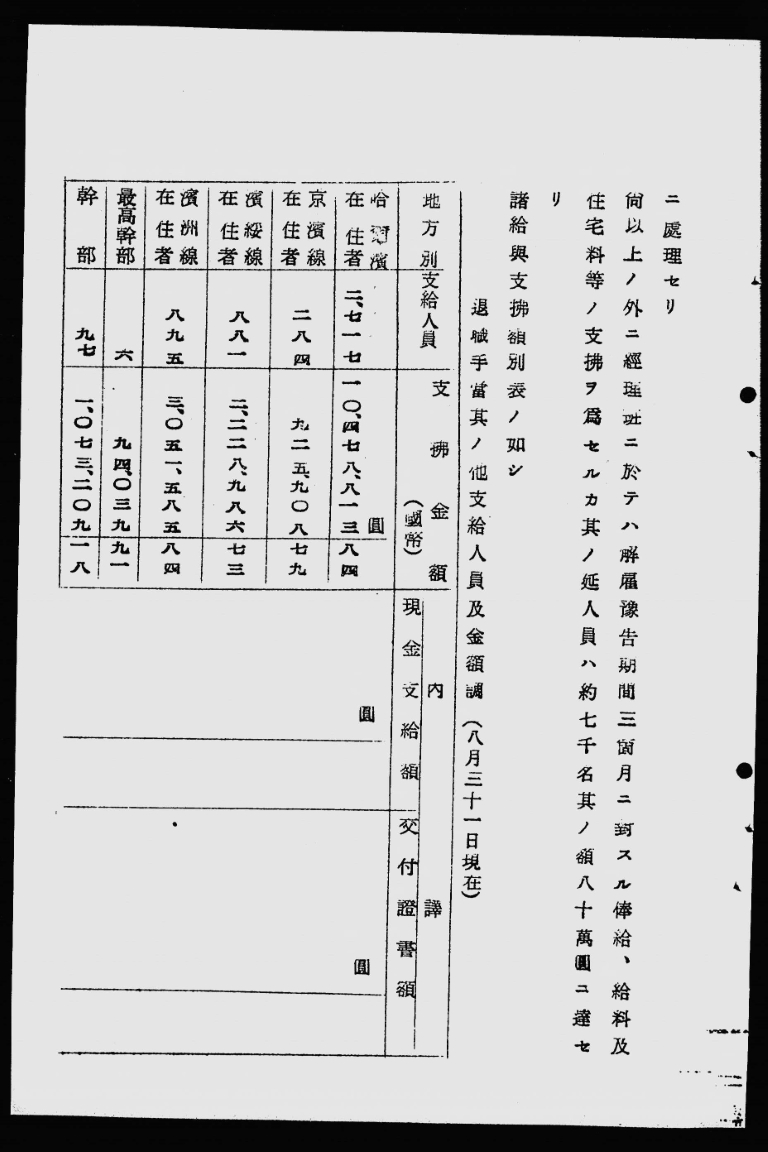 ニ處理セリ
尙以上ノ外ニ經理班ニ於テハ解雇豫告期間三箇月ニ對スル俸給、給料及
住宅料等ノ支拂ヲ爲セルカ其ノ延人員ハ約七千名其ノ額八十萬圓ニ達セ
リ
諸給與支拂額別表ノ如シ
退職手當其ノ他支給人員及金額調（八月三十一日現在）
地方別
支給人員
支拂金額
（國幣）
內譯
現金支給額
交付證書額
哈爾濱
在住者
二、七一七
一〇、四七八、八一三
圓
八四
圓
圓
京濱線
在住者
二八四
九二五、九〇八
七九
濱綏線
在住者
八八一
二、二二八、九八六
七三
濱洲線
在住者
八九五
三、〇五一、五八五
八四
最高幹部
六
九四、〇三九
九一
幹部
九七
一、〇七三、二〇九
一八